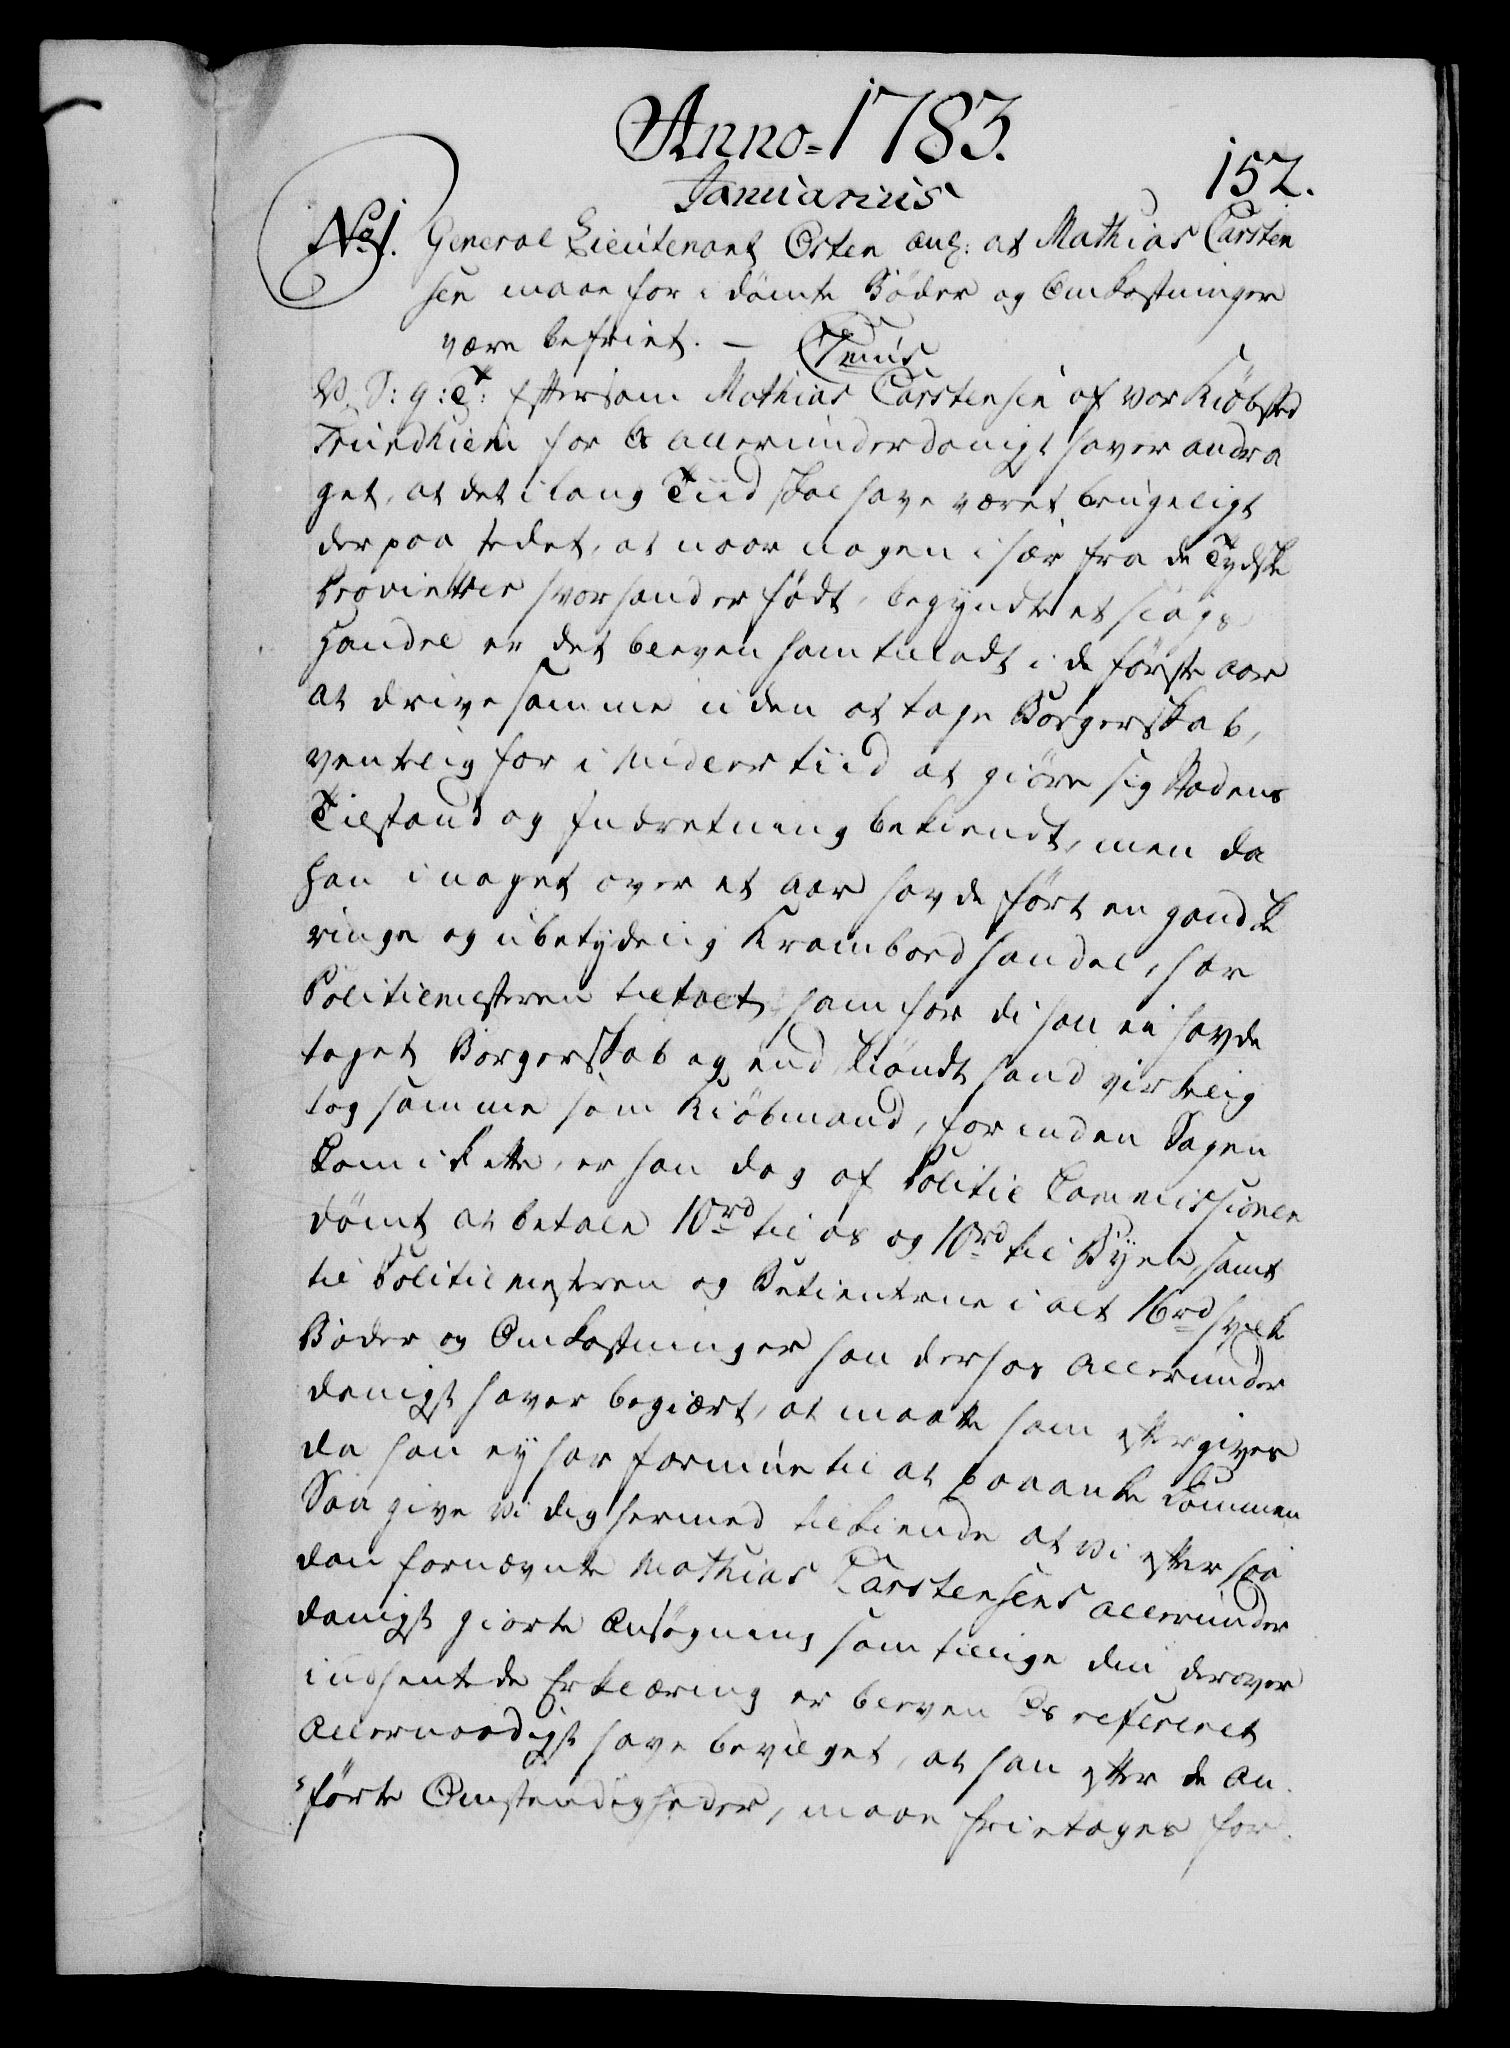 Anno=1783.
152.
Januarius
No 1. General Lieutenant Osten ang: at Mathias Carsten
sen maae for idömte Böder og Omkostninger
være befriet. —
V. S: g: T: Eftersom Mathias Carstensen af Vor Kiöbsted
Trundhiem for Os allerunderdanigst haver andra
get, at det i lang Tiid skal have været brugeligt
der paa stedet, at naar nogen i sær fra de Tydske
Provintzer hvor hand er födt, begyndte et slags
Handel er det bleven ham tilladt i de förste aar
at drive samme uden at tage Borgerskab,
ventelig for i midlertiid at giöre sig Stadens
Tilstand og Indretning bekiendt, men da
han i noget over et Aar havde fört en gandske
ringe og ubetydelig Krambod handel, har
Politiemesteren tiltalt ham for di han ei havde
taget Borgerskab og end skiöndt hand virkelig
tog samme som Kiöbmand, forinden Sagen
kom i Rette, er han dog af Politie Commissionen
dömt at betale 10rd til os og 10rd til Byen, samt
til Politiemesteren og Betienterne i alt 16rd hvilke
Böder og Omkostninger han derhos allerunder
danigst haver begiært, at maatte ham eftergives
da han ey har formue til at paaanke Dommen
Saa give Vi dig hermed tilkiende at Vi efter saa
dan fornævnte Mathias Carstensens allerunder
danigst giorte Ansögning som tillige din derover
indsendte Erklæring er bleven Os refereret
Allernaadigst have bevilget, at han efter de an
förte Omstændigheder, maae fritages for